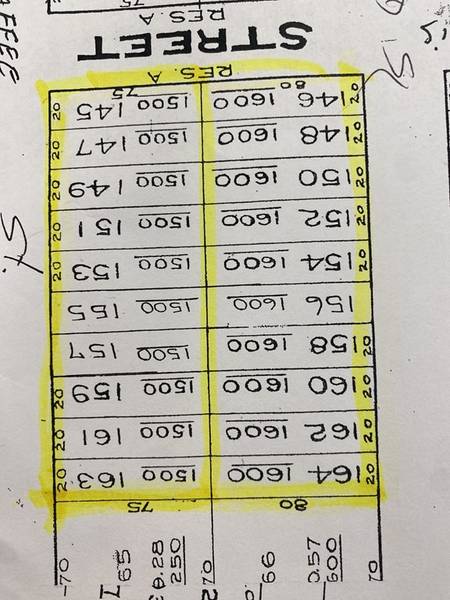 80 75
20 164 1600 1500 163 20
20 162 1600 1500 161 20
20 160 1600 1500 159 20
20 158 1600 1500 157
156 1600 1500 155 20
20 154 1600 1500 153 20
20 152 1600 1500 151 20
20 150 1600 1500 149 20
20 148 1600 1500 147 20
20 146 80 1600 1500 75 145 20
RES. A
STREET
RES. A
75
St.